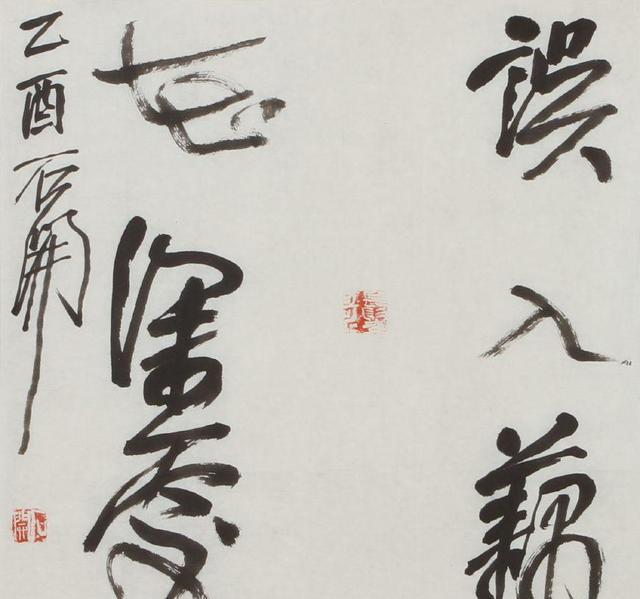 誤入藕
花深處
乙酉石開